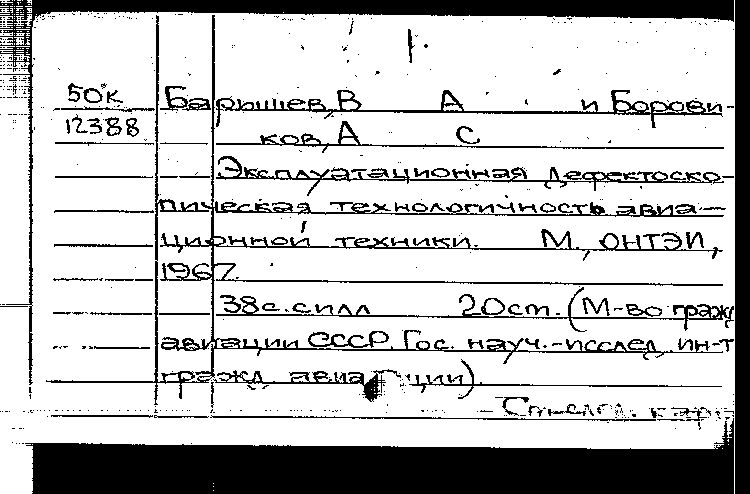 1.
50К Барышев, В А и Борови-
12388 ков, А С
Эксплуатационная дефектоско-
пическая технологичность авиа-
ционной техники. М., ОНТЭИ,
1967.
38с. с илл 20см. (М-во гражд
авиации СССР. Гос. науч.-исслед. ин-т
гражд. авиации).